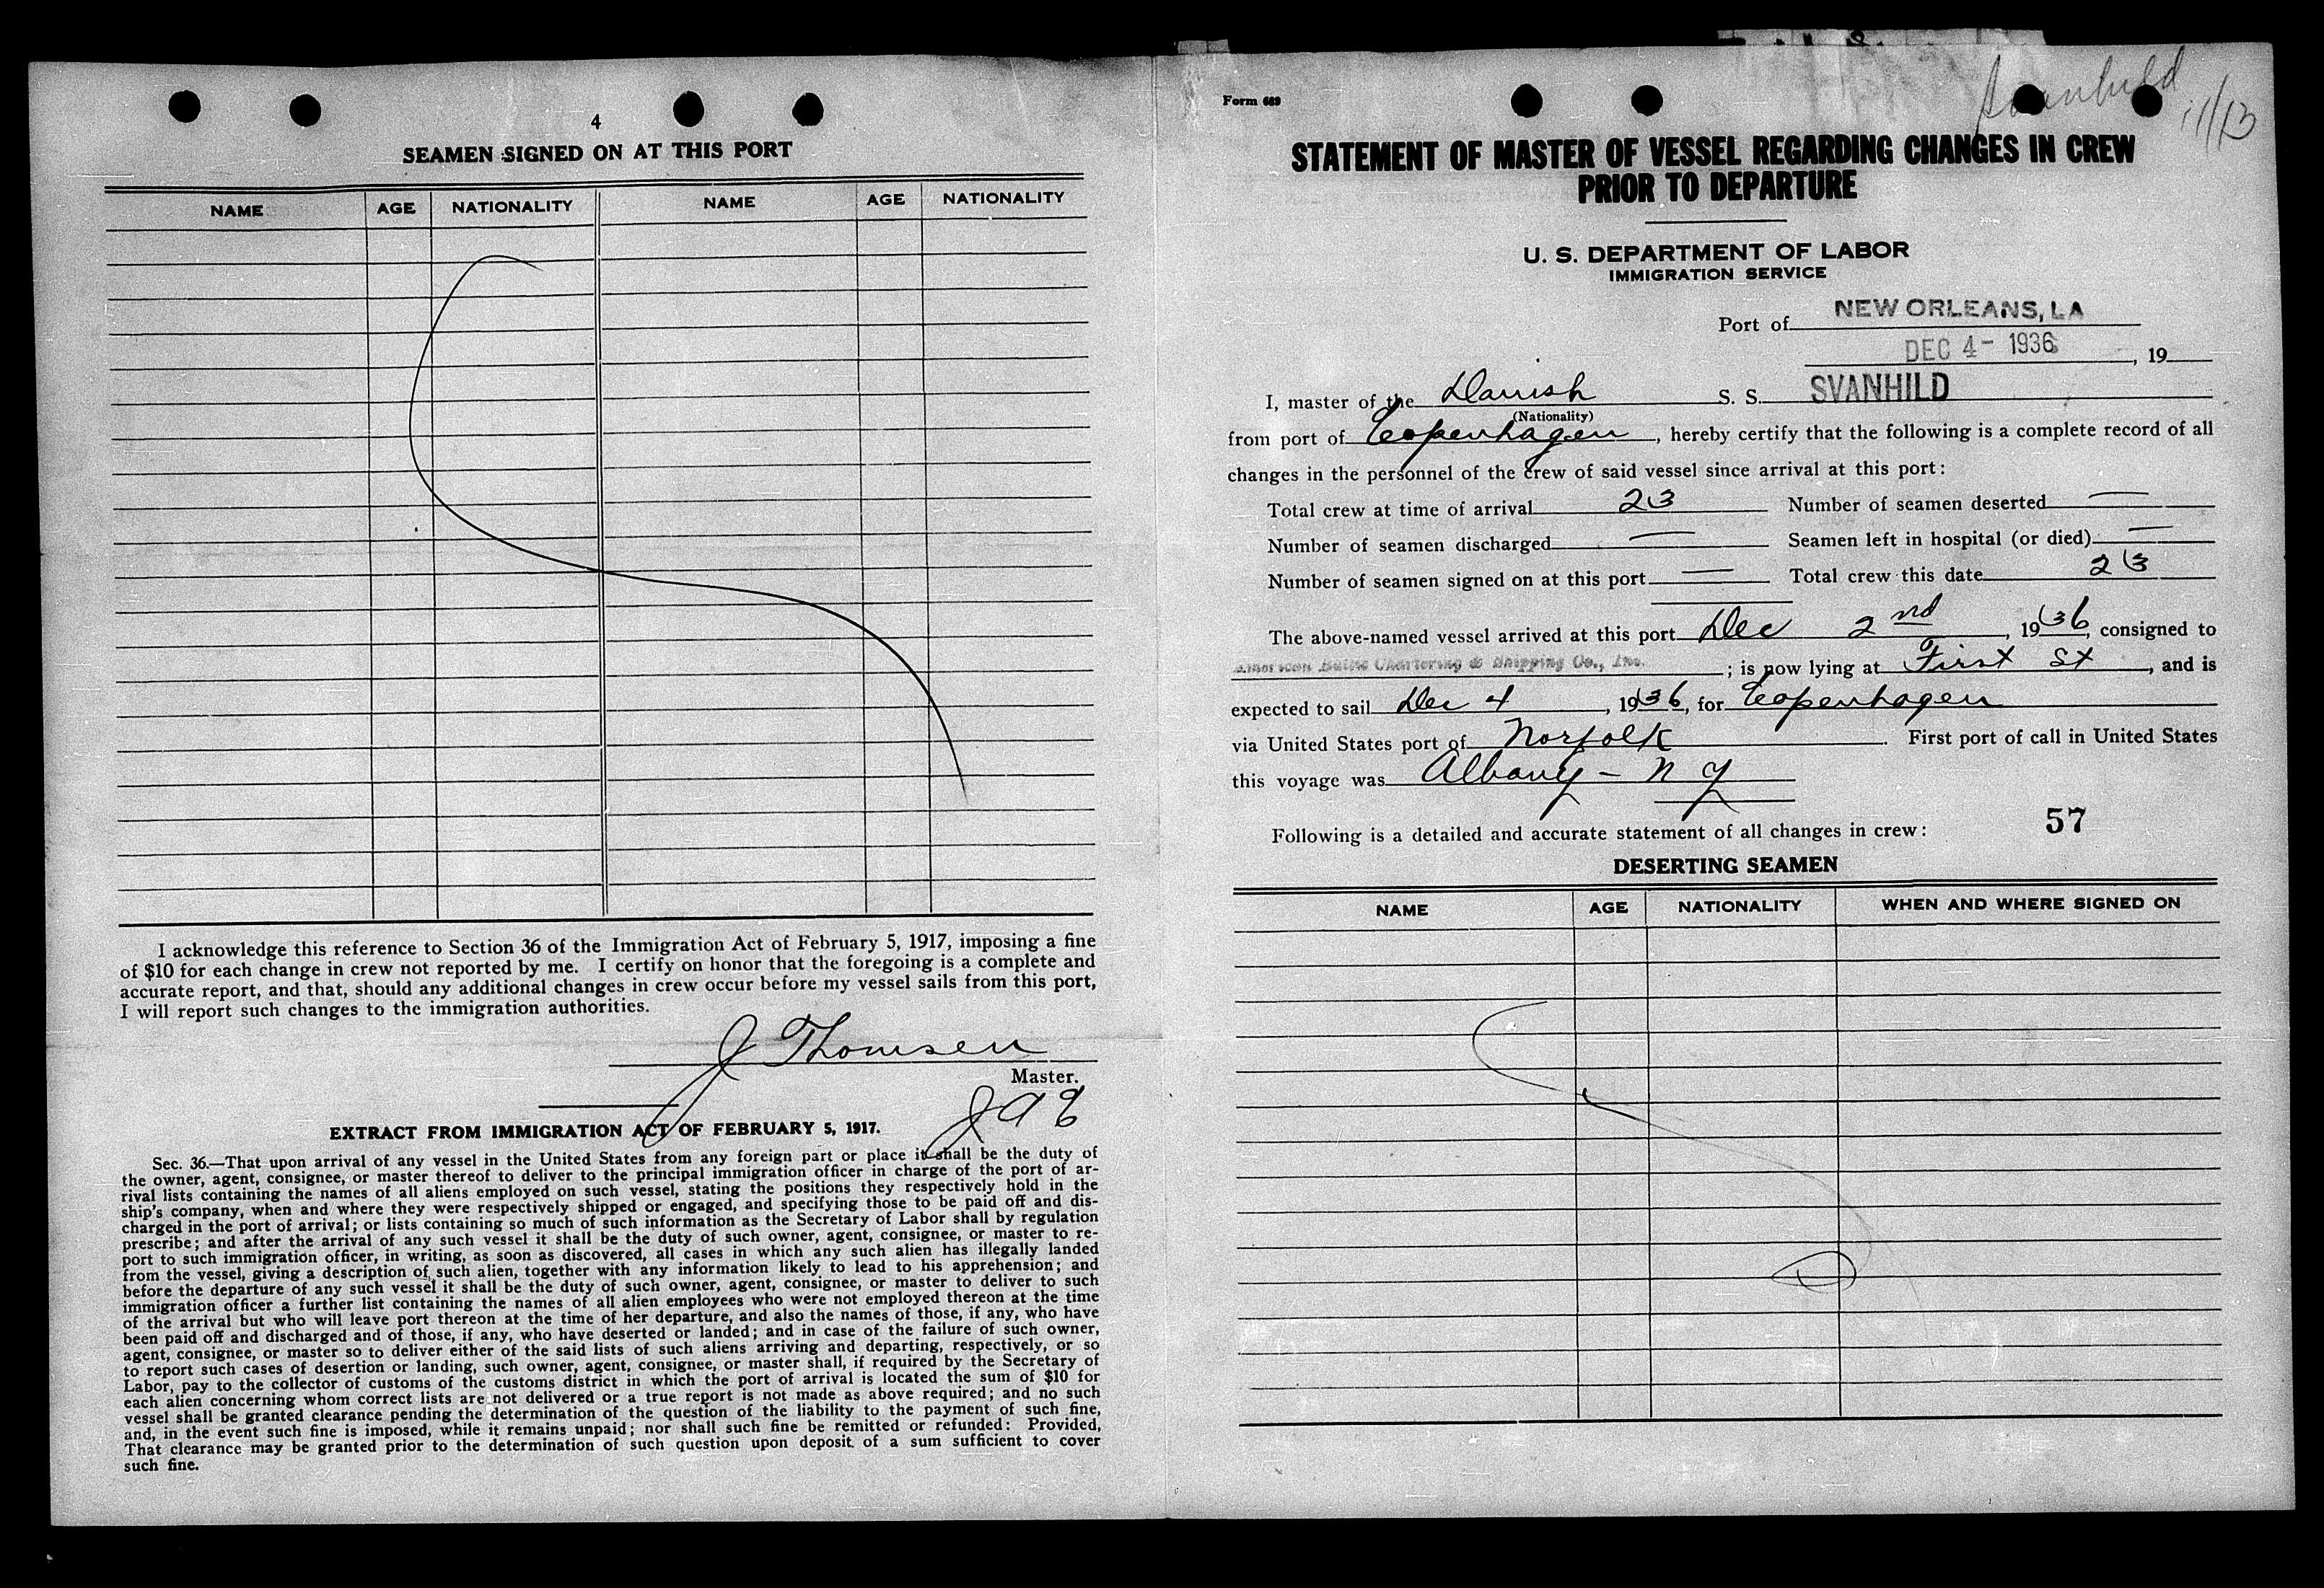 4
SEAMEN SIGNED ON AT THIS PORT
NAME AGE NATIONALITY NAME AGE NATIONALITY
I acknowledge this reference to Section 36 of the Immigration Act of February 5, 1917, imposing a fine
of $10 for each change in crew not reported by me. I certify on honor that the foregoing is a complete and
accurate report, and that, should any additional changes in crew occur before my vessel sails from this port,
I will report such changes to the immigration authorities.
J Thomsen
Master.
EXTRACT FROM IMMIGRATION ACT OF FEBRUARY 5, 1917.
Sec. 36.—That upon arrival of any vessel in the United States from any foreign part or place it shall be the duty of
the owner, agent, consignee, or master thereof to deliver to the principal immigration officer in charge of the port of ar-
rival lists containing the names of all aliens employed on such vessel, stating the positions they respectively hold in the
ship's company, when and where they were respectively shipped or engaged, and specifying those to be paid off and dis-
charged in the port of arrival; or lists containing so much of such information as the Secretary of Labor shall by regulation
prescribe; and after the arrival of any such vessel it shall be the duty of such owner, agent, consignee, or master to re-
port to such immigration officer, in writing, as soon as discovered, all cases in which any such alien has illegally landed
from the vessel, giving a description of such alien, together with any information likely to lead to his apprehension; and
before the departure of any such vessel it shall be the duty of such owner, agent, consignee, or master to deliver to such
immigration officer a further list containing the names of all alien employees who were not employed thereon at the time
of the arrival but who will leave port thereon at the time of her departure, and also the names of those, if any, who have
been paid off and discharged and of those, if any, who have deserted or landed; and in case of the failure of such owner,
agent, consignee, or master so to deliver either of the said lists of such aliens arriving and departing, respectively, or so
to report such cases of desertion or landing, such owner, agent, consignee, or master shall, if required by the Secretary of
Labor, pay to the collector of customs of the customs district in which the port of arrival is located the sum of $10 for
each alien concerning whom correct lists are not delivered or a true report is not made as above required; and no such
vessel shall be granted clearance pending the determination of the question of the liability to the payment of such fine,
and, in the event such fine is imposed, while it remains unpaid; nor shall such fine be remitted or refunded: Provided,
That clearance may be granted prior to the determination of such question upon deposit of a sum sufficient to cover
such fine.
Form 689
Svanhild
11/13
STATEMENT OF MASTER OF VESSEL REGARDING CHANGES IN CREW
PRIOR TO DEPARTURE
U. S. DEPARTMENT OF LABOR
IMMIGRATION SERVICE
Port of NEW ORLEANS, LA
DEC 4- 1936, 19
I, master of the Danish S. S. SVANHILD
(Nationality)
from port of Copenhagen, hereby certify that the following is a complete record of all
changes in the personnel of the crew of said vessel since arrival at this port:
Total crew at time of arrival 23 Number of seamen deserted —
Number of seamen discharged — Seamen left in hospital (or died) —
Number of seamen signed on at this port — Total crew this date 23
The above-named vessel arrived at this port Dec 2nd, 1936, consigned to
American Baltic Chartering & Shipping Co., Inc. ; is now lying at First St, and is
expected to sail Dec 4, 1936, for Copenhagen
via United States port of Norfolk. First port of call in United States
this voyage was Albany - N Y
Following is a detailed and accurate statement of all changes in crew: 57
DESERTING SEAMEN
NAME AGE NATIONALITY WHEN AND WHERE SIGNED ON